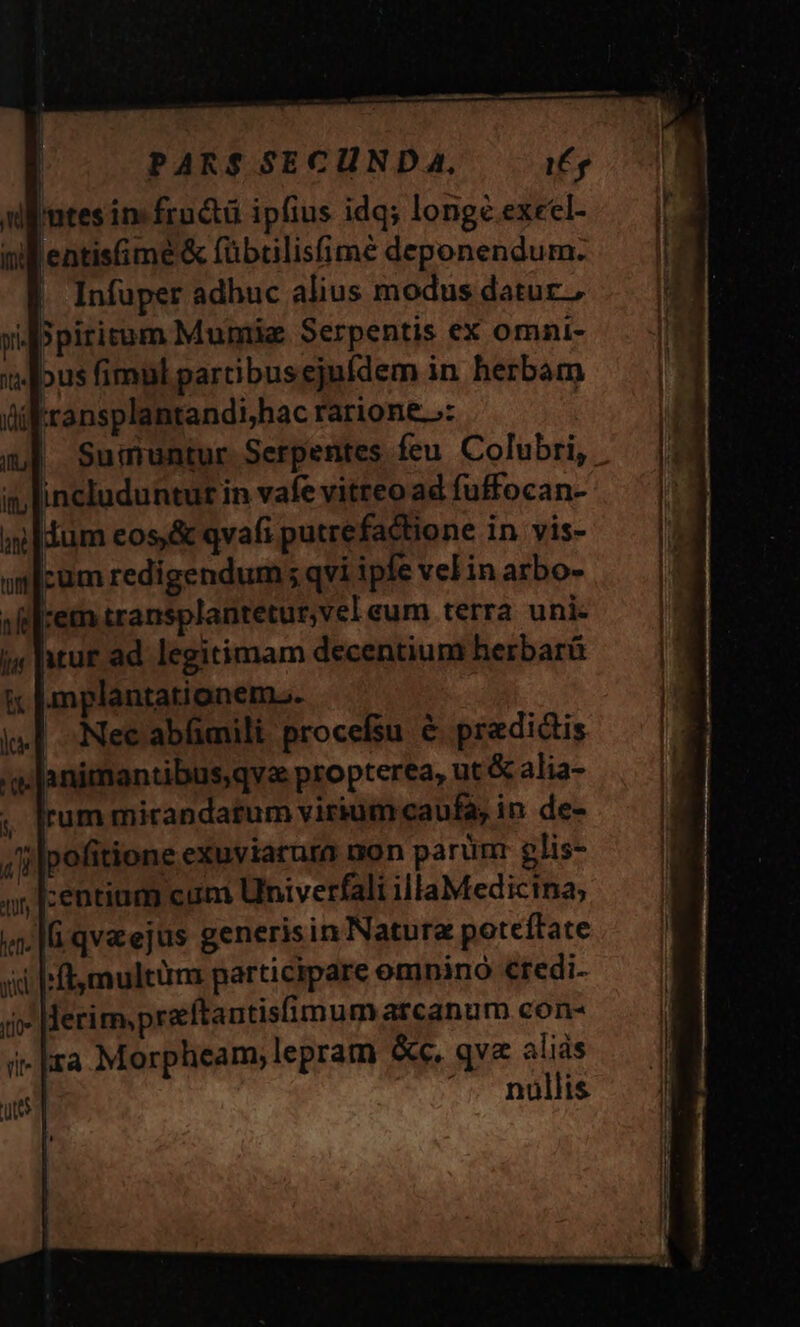 PARS SECUNDA. 165
utes in fructũ ipſius idq; longè excel-
entisſimè & ſũbtilisſimè deponendum.
Inſuper adhuc alius modus datur,
Spiritum Mumiæ Serpentis ex omni-
bus ſimul partibus ejuſdem in herbam
transplantandi, hac rarione:
Sumuntur Serpentes ſeu Colubri,
includuntur in vaſe vitreo ad ſuffocan-
dum eos, & qvaſi putrefactione in vis-
cum redigendum; qvi ipſe vel in arbo-
rem transplantetur, vel eum terra uni-
atur ad legitimam decentium herbarũ
implantationem.
Nec abſimili proceſsu è prædictis
animantibus, qvæ propterea, ut & alia-
rum mirandarum virium cauſa, in de-
poſitione exuviarum non parùm glis-
centium cum Univerſali illa Medicina,
ſi qvæ ejus generis in Naturæ poteſtate
eſt, multùm participare omninò credi-
derim, præſtantisſimum arcanum con-
tra Morpheam, lepram &c. qvæ aliàs
nullis